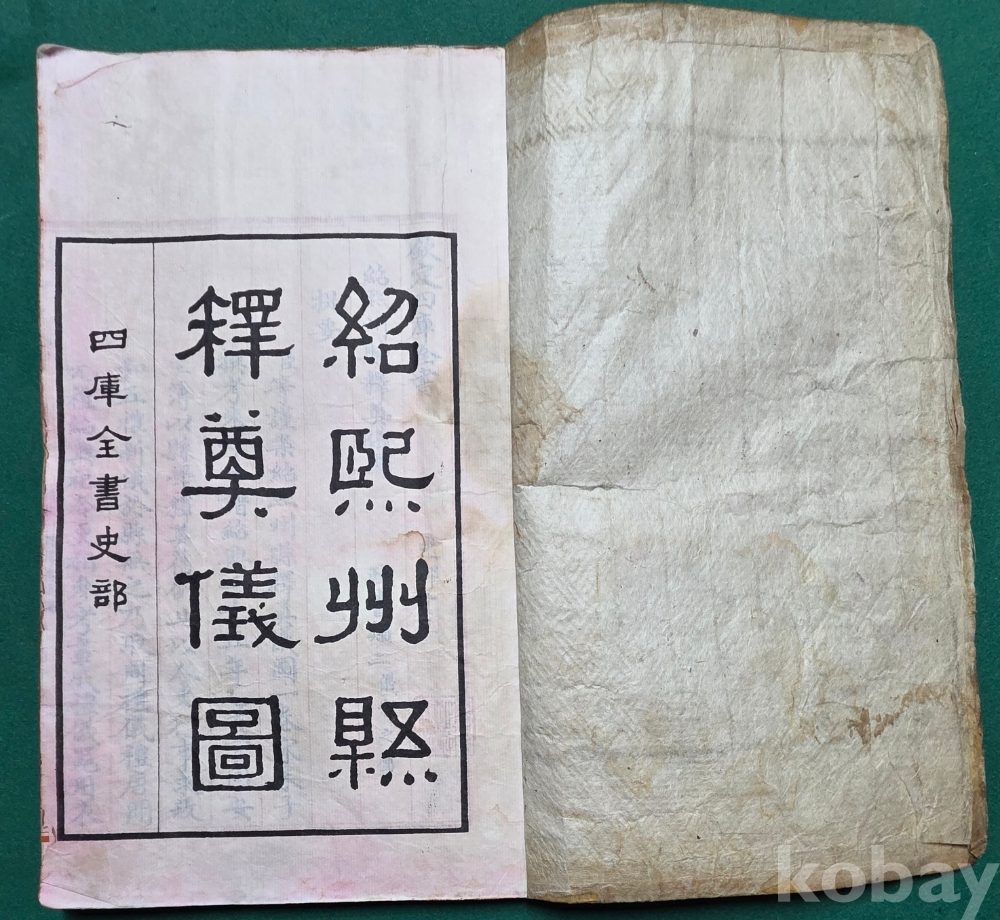 紹熙州縣
釋奠儀圖
四庫全書史部
kobay